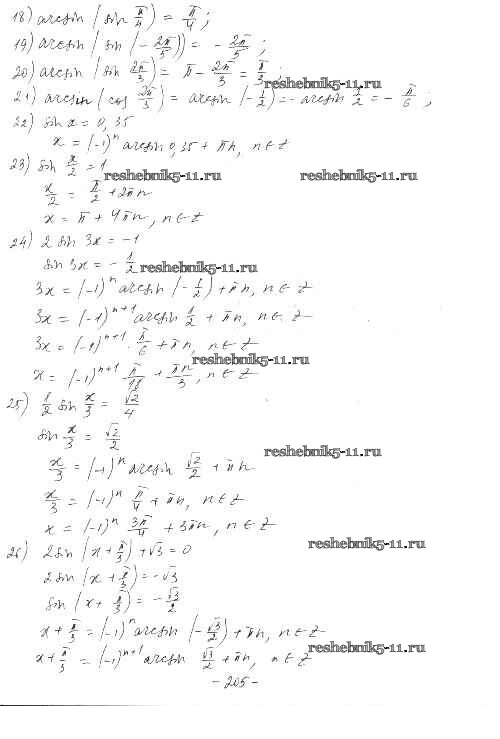 18) arcsin (sin π/4) = π/4 ;
19) arcsin (sin (-2π/5)) = -2π/5 ;
20) arcsin (sin 2π/3) = π - 2π/3 = π/3 ;
reshebnik5-11.ru
21) arcsin (cos 2π/3) = arcsin (-1/2) = - arcsin 1/2 = - π/6 ;
22) sin x = 0,35
x = (-1)^n arcsin 0,35 + πn, n ∈ Z
23) sin x/2 = 1
reshebnik5-11.ru reshebnik5-11.ru
x/2 = π/2 + 2πn
x = π + 4πn, n ∈ Z
24) 2 sin 3x = -1
sin 3x = - 1/2 reshebnik5-11.ru
3x = (-1)^n arcsin (-1/2) + πn, n ∈ Z
3x = (-1)^(n+1) arcsin 1/2 + πn, n ∈ Z
3x = (-1)^(n+1) π/6 + πn, n ∈ Z
reshebnik5-11.ru
x = (-1)^(n+1) π/18 + πn/3, n ∈ Z
25) 1/2 sin x/3 = √2/4
sin x/3 = √2/2
reshebnik5-11.ru
x/3 = (-1)^n arcsin √2/2 + πn
x/3 = (-1)^n π/4 + πn, n ∈ Z
x = (-1)^n 3π/4 + 3πn, n ∈ Z
reshebnik5-11.ru
26) 2sin (x + π/3) + √3 = 0
2sin (x + π/3) = -√3
sin (x + π/3) = - √3/2
x + π/3 = (-1)^n arcsin (-√3/2) + πn, n ∈ Z
reshebnik5-11.ru
x + π/3 = (-1)^(n+1) arcsin √3/2 + πn, n ∈ Z
- 205 -